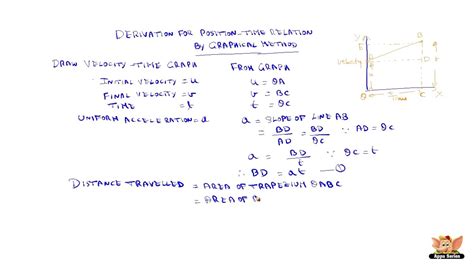 DERIVATION FOR POSITION-TIME RELATION
BY GRAPHICAL METHOD
DRAW VELOCITY-TIME GRAPH
FROM GRAPH
INITIAL VELOCITY = u
u = OA
FINAL VELOCITY = v
v = BC
TIME = t
t = OC
UNIFORM ACCELERATION = a
a = SLOPE OF LINE AB
= BD/AD = BD/OC ∵ AD = OC
a = BD/t ∵ OC = t
∴ BD = at —①
DISTANCE TRAVELLED = AREA OF TRAPEZIUM OABC
= AREA OF
Y
B
Velocity
A
D
O
Time
C
X
Appu Series